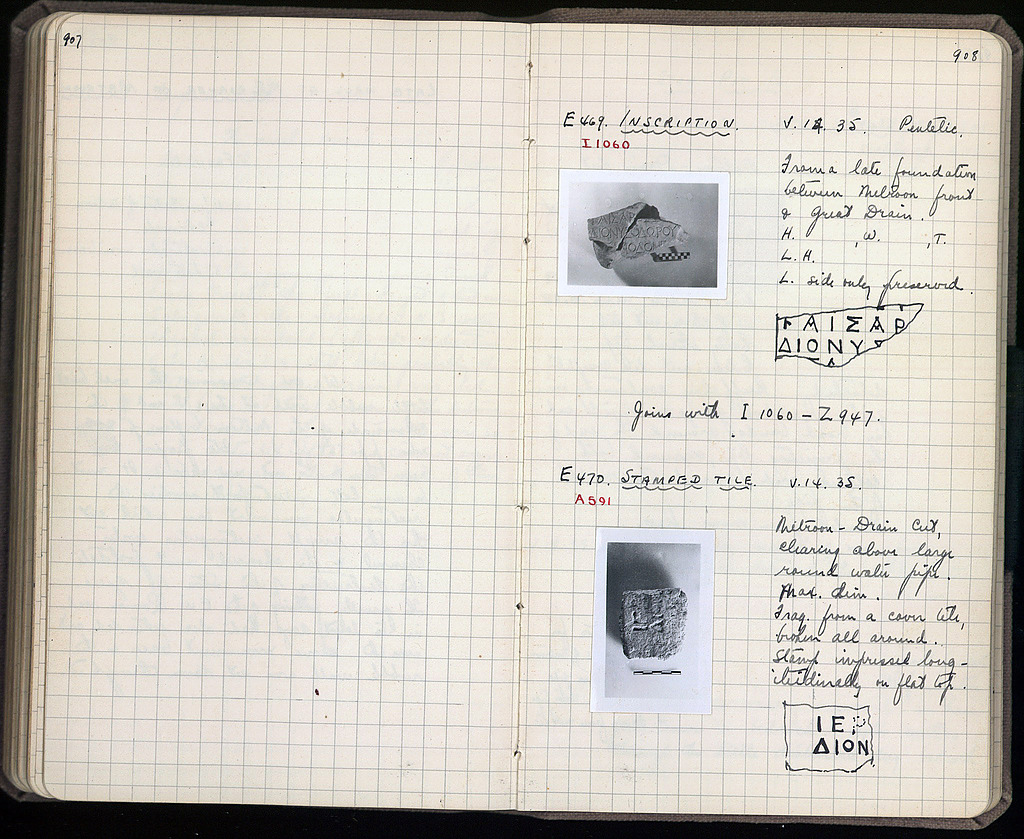 907
908
E 469. INSCRIPTION. V. 14. 35. Pentelic.
I 1060
From a late foundation
between Metroon front
& Great Drain.
H. , W. , T.
L. H.
L. side only preserved.
ΚΑΙΣΑΡ
ΔΙΟΝΥ
ΟΔΩΡΟΥ
Joins with I 1060 – Z 947.
E 470. STAMPED TILE. V. 14. 35.
A 591
Metroon – Drain Cut,
clearing above large
round water pipe.
Max. dim.
Frag. from a cover tile,
broken all around.
Stamp impressed long-
itudinally on flat top.
ΙΕΡ
ΔΙΟΝ